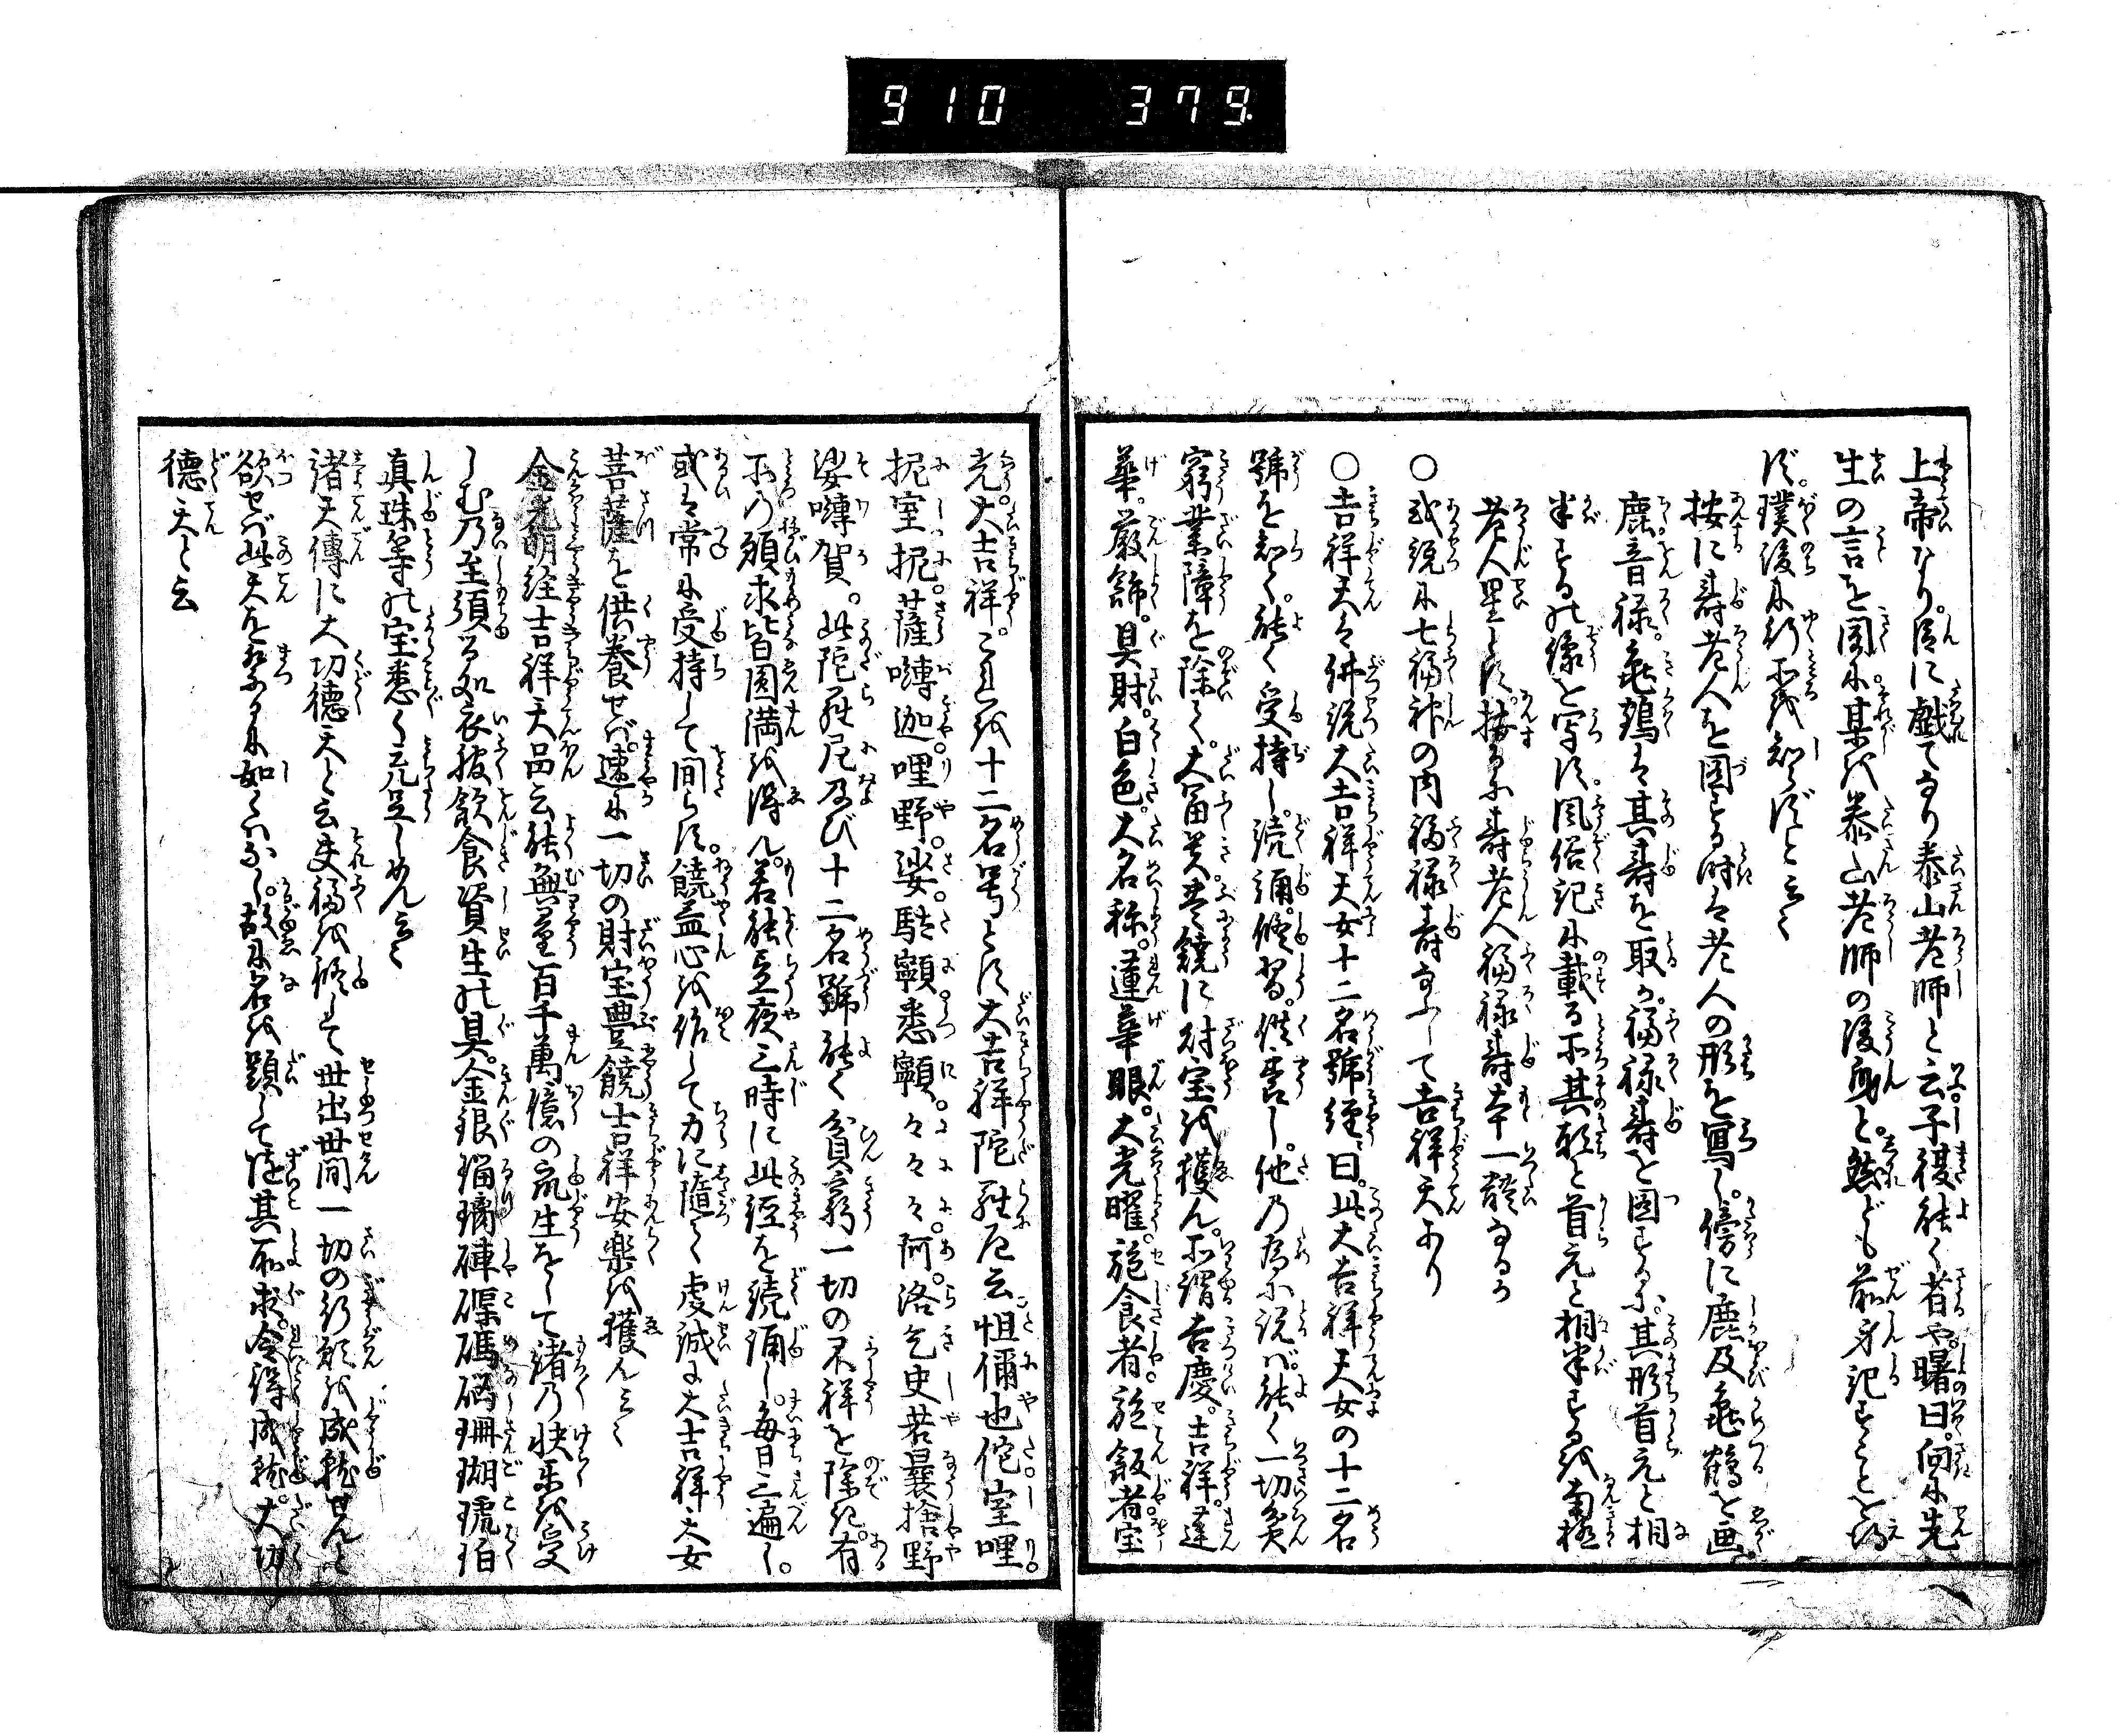 910 379.
上帝なり。后に戯てより泰山老師と云子複能く者や曙曰。向に先
生の言を聞に某を泰山老師の後身と。然ども前身記することを得
ず。璞後に行所を知らずと云々
按に寿老人を図する時は老人の形を写し。傍に鹿及亀鶴を画。
鹿音禄。亀鶴は其寿を取る。福禄寿を図するに。其形首元と相
半するの像を写す。風俗記に載る所其軀と首元と相半するを南極
老人星とす。按るに寿老人福禄寿本一體なるか
○或説に七福神の内福禄寿なふして吉祥天あり
○吉祥天は佛説大吉祥天女十二名號経曰。此大吉祥天女の十二名
號を知て。能く受持し。読誦。修習。供養し。他の為に説ば。能く一切貧
窮業障を除て。大冨貴豊饒に財宝を獲ん。所謂吉慶。吉祥。蓮
華。厳飾。具財。白色。大名称。蓮華眼。大光曜。施食者。施飯者。宝
光。大吉祥。これを十二名号とす大吉祥陀羅尼云怛儞也佗室哩。
抳室抳。薩囀迦哩野。娑。駐顊悉顊。々々々々阿。洛乞史若曩捨野
娑囀賀。此陀羅尼及び十二名號能く貧窮一切の不祥を除き。有
所の願求皆圓満を得ん。若能昼夜三時に此経を読誦し。毎日三遍し。
或は常に受持して間らず。饒益心を作して力に隨て虔誠に大吉祥天女
菩薩を供養せば。速に一切の財宝豊饒吉祥安楽を獲ん云々
金光明経吉祥天品云能無量百千萬億の衆生をして諸の快楽を受
しむ乃至須る処衣披飲食資生の具。金銀瑠璃硨磲碼碯珊瑚琥珀
真珠等の宝悉く充足しめん云々
諸天傳に大功徳天と云夫福を修して世出世間一切の行願を成就せんと
欲せば此天を祭るに如くはなし。故に名を顕して遂其所求。令得成就。大功
徳天と云